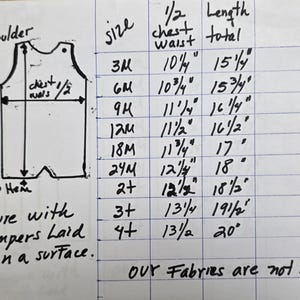 oulder
chest 1/2
wais
Hem
re with
mpers Laid
n a surface.
size 1/2 chest waist Length total
3M 10 1/4" 15 1/4"
6M 10 3/4" 15 3/4"
9M 11 1/4" 16 1/4"
12M 11 1/2" 16 1/2"
18M 11 3/4" 17"
24M 12 1/4" 18"
2t 12 1/2" 18 1/2"
3t 13 1/4 19 1/2"
4t 13 1/2 20"
our Fabrics are not